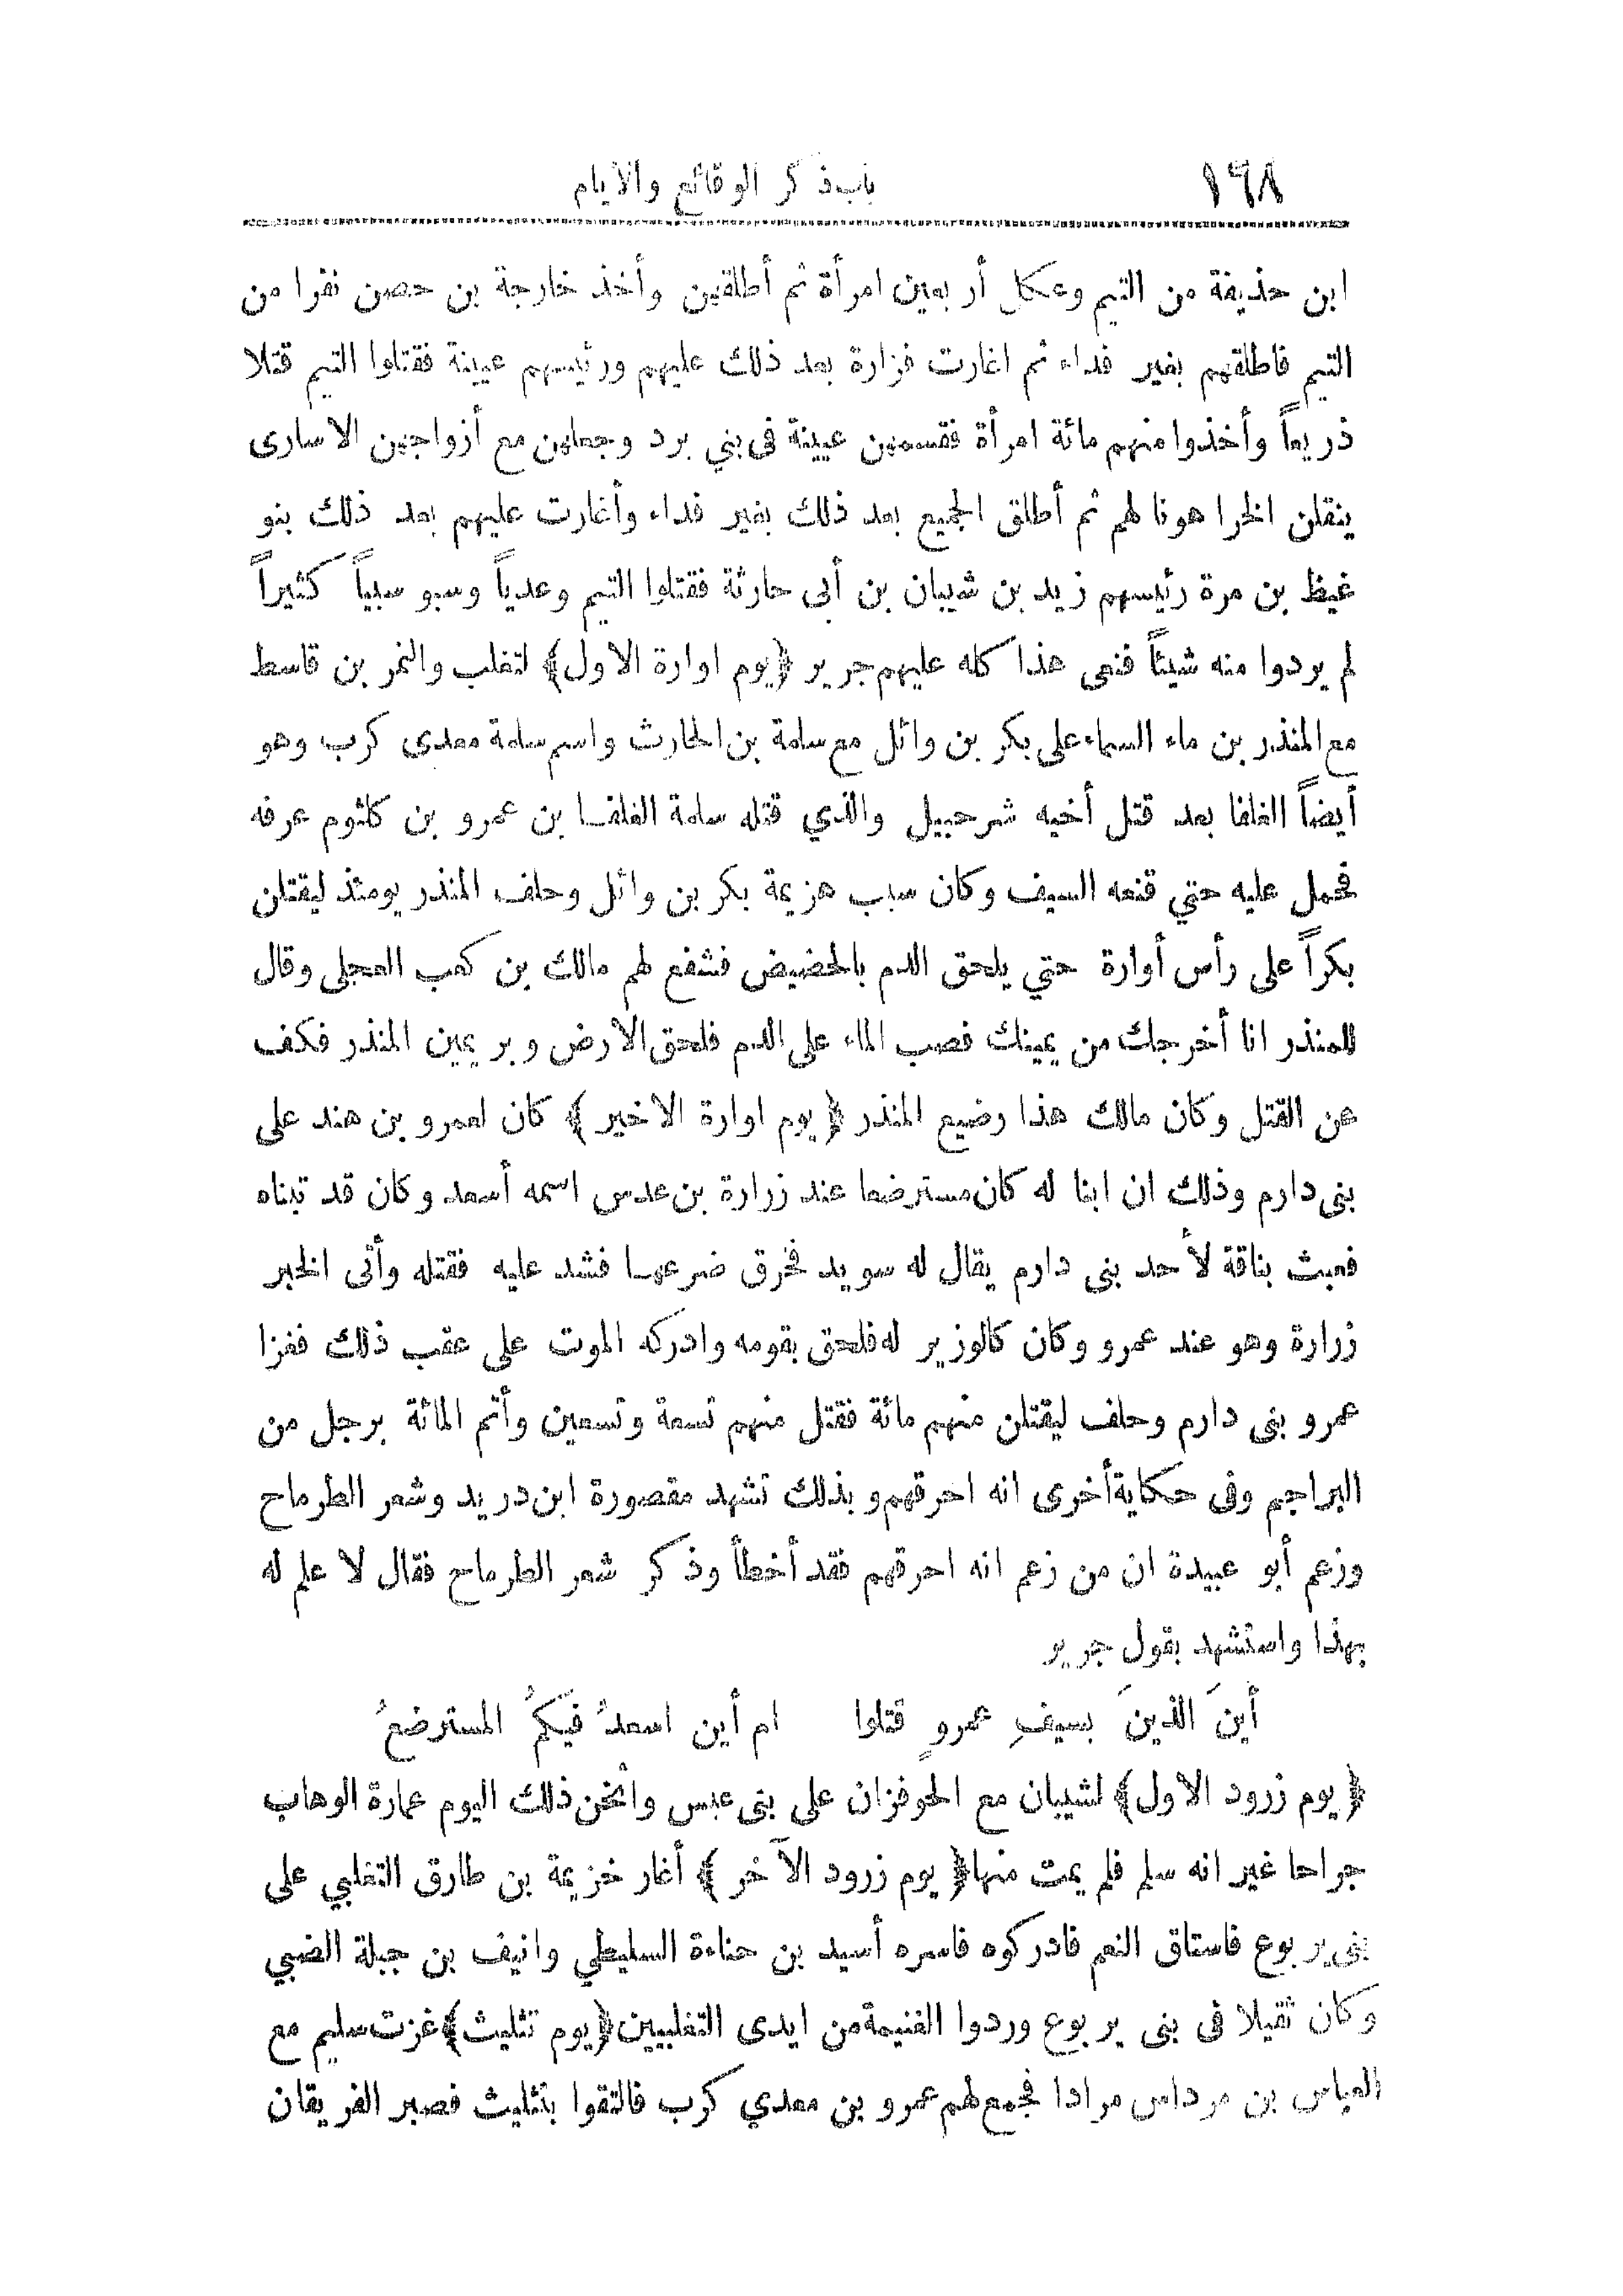 ١٩٨ باب ذكر الوقائع والأيام
ابن حذيفة من التيم وعكل أربعين امرأة ثم أطلقهن وأخذ خارجة بن حصن نفرا من
التيم فاطلقهم بغير فداء ثم اغارت فزارة بعد ذلك عليهم ورئيسهم عيينة فقتلوا التيم قتلا
ذريعاً وأخذوا منهم مائة امرأة فقسمهن عيينة في بني برد وجعلهن مع أزواجهن الاسارى
ينقلن الخرا هونا لهم ثم أطلق الجميع بعد ذلك بغير فداء وأغارت عليهم بعد ذلك بنو
غيظ بن مرة رئيسهم زيد بن شيبان بن أبى حارثة فقتلوا التيم وعدياً وسبو سبياً كثيراً
لم يردوا منه شيئاً فنعى هذا كله عليهم جرير ﴿يوم اوارة الاول﴾ لتغلب والنمر بن قاسط
مع المنذر بن ماء السماء على بكر بن وائل مع سلمة بن الحارث واسم سلمة معدى كرب وهو
أيضاً الغلفا بعد قتل أخيه شرحبيل والذي قتله سلمة الغلفا بن عمرو بن كلثوم عرفه
فحمل عليه حتي قنعه السيف وكان سبب هزيمة بكر بن وائل وحلف المنذر يومئذ ليقتلن
بكراً على رأس أوارة حتي يلحق الدم بالحضيض فشفع لهم مالك بن كعب العجلى وقال
للمنذر انا أخرجك من يمينك فصب الماء على الدم فلحق الارض وبر يمين المنذر فكف
عن القتل وكان مالك هذا رضيع المنذر ﴿يوم اوارة الاخير﴾ كان لعمرو بن هند على
بنى دارم وذلك ان ابنا له كان مسترضعا عند زرارة بن عدس اسمه أسعد وكان قد تبناه
فعبث بناقة لأحد بنى دارم يقال له سويد فخرق ضرعها فشد عليه فقتله وأتى الخبر
زرارة وهو عند عمرو وكان كالوزير له فلحق بقومه وادركه الموت على عقب ذلك فغزا
عمرو بنى دارم وحلف ليقتلن منهم مائة فقتل منهم تسعة وتسعين وأتم المائة برجل من
البراجم وفى حكاية أخرى انه احرقهم وبذلك تشهد مقصورة ابن دريد وشعر الطرماح
وزعم أبو عبيدة ان من زعم انه احرقهم فقد أخطأ وذكر شعر الطرماح فقال لا علم له
بهذا واستشهد بقول جرير
أينَ الذينَ بسيفِ عمروٍ قتلوا ام أين اسعدُ فيكمُ المسترضعُ
﴿يوم زرود الاول﴾ لشيبان مع الحوفزان على بنى عبس واثخن ذلك اليوم عمارة الوهاب
جراحا غير انه سلم فلم يمت منها ﴿يوم زرود الآخر﴾ أغار خزيمة بن طارق التغلبي على
بنى يربوع فاستاق النعم فادركوه فاسره أسيد بن حناءة السليطي وانيف بن جبلة الضبي
وكان ثقيلا فى بنى يربوع وردوا الغنيمة من ايدى التغلبيين ﴿يوم تثليث﴾ غزت سليم مع
العباس بن مرداس مرادا فجمع لهم عمرو بن معدي كرب فالتقوا بتثليث فصبر الفريقان